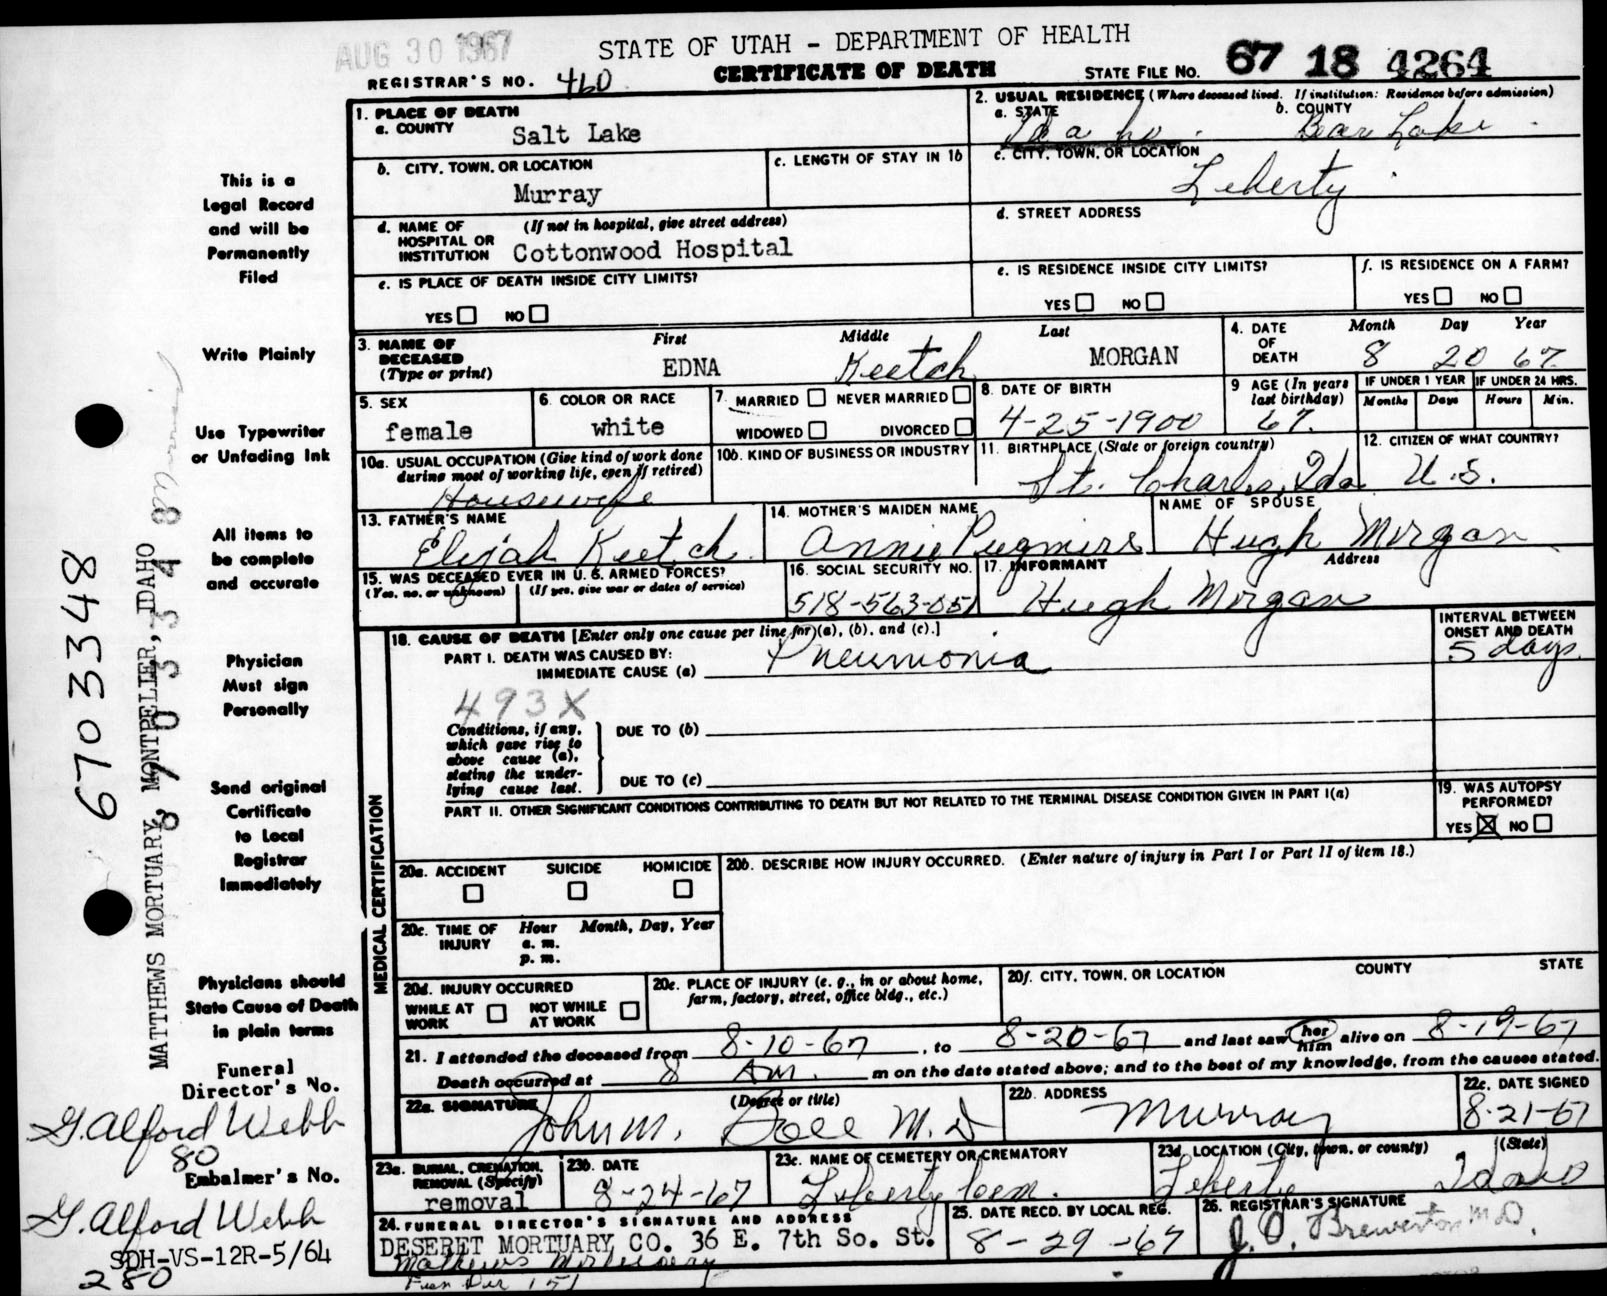 AUG 30 1967
STATE OF UTAH - DEPARTMENT OF HEALTH
REGISTRAR'S NO. 460
CERTIFICATE OF DEATH
STATE FILE NO. 67 18 4264
1. PLACE OF DEATH
a. COUNTY Salt Lake
2. USUAL RESIDENCE (Where deceased lived. If institution: Residence before admission)
a. STATE Idaho. b. COUNTY Bear Lake.
b. CITY, TOWN, OR LOCATION Murray
c. LENGTH OF STAY IN 1b
c. CITY, TOWN, OR LOCATION Liberty
d. NAME OF HOSPITAL OR INSTITUTION (If not in hospital, give street address)
Cottonwood Hospital
d. STREET ADDRESS
e. IS PLACE OF DEATH INSIDE CITY LIMITS?
YES NO
e. IS RESIDENCE INSIDE CITY LIMITS?
YES NO
f. IS RESIDENCE ON A FARM?
YES NO
3. NAME OF DECEASED (Type or print)
First Middle Last
EDNA Keetch MORGAN
4. DATE OF DEATH
Month Day Year
8 20 67
5. SEX female
6. COLOR OR RACE white
7. MARRIED NEVER MARRIED
WIDOWED DIVORCED
8. DATE OF BIRTH 4-25-1900
9 AGE (In years last birthday) 67.
IF UNDER 1 YEAR IF UNDER 24 HRS.
Months Days Hours Min.
10a. USUAL OCCUPATION (Give kind of work done during most of working life, even if retired)
Housewife
10b. KIND OF BUSINESS OR INDUSTRY
11. BIRTHPLACE (State or foreign country)
St. Charles, Ida
12. CITIZEN OF WHAT COUNTRY?
U.S.
13. FATHER'S NAME
Elijah Keetch
14. MOTHER'S MAIDEN NAME
Annie Pugmire
NAME OF SPOUSE
Hugh Morgan
15. WAS DECEASED EVER IN U. S. ARMED FORCES?
(Yes, no, or unknown) (If yes, give war or dates of service)
16. SOCIAL SECURITY NO.
518-563-051
17. INFORMANT Address
Hugh Morgan
MEDICAL CERTIFICATION
18. CAUSE OF DEATH [Enter only one cause per line for (a), (b), and (c).]
PART I. DEATH WAS CAUSED BY:
IMMEDIATE CAUSE (a) Pneumonia
INTERVAL BETWEEN ONSET AND DEATH
5 days.
493X
Conditions, if any, which gave rise to above cause (a), stating the underlying cause last.
DUE TO (b)
DUE TO (c)
PART II. OTHER SIGNIFICANT CONDITIONS CONTRIBUTING TO DEATH BUT NOT RELATED TO THE TERMINAL DISEASE CONDITION GIVEN IN PART I(a)
19. WAS AUTOPSY PERFORMED?
YES X NO
20a. ACCIDENT SUICIDE HOMICIDE
20b. DESCRIBE HOW INJURY OCCURRED. (Enter nature of injury in Part I or Part II of item 18.)
20c. TIME OF INJURY Hour Month, Day, Year
a. m.
p. m.
20d. INJURY OCCURRED
WHILE AT WORK NOT WHILE AT WORK
20e. PLACE OF INJURY (e. g., in or about home, farm, factory, street, office bldg., etc.)
20f. CITY, TOWN, OR LOCATION COUNTY STATE
21. I attended the deceased from 8-10-67, to 8-20-67 and last saw her him alive on 8-19-67
Death occurred at 8 Am. m on the date stated above; and to the best of my knowledge, from the causes stated.
22a. SIGNATURE (Degree or title)
John M. M.D
22b. ADDRESS
Murray
22c. DATE SIGNED
8-21-67
23a. BURIAL, CREMATION, REMOVAL (Specify)
removal
23b. DATE
8-24-67
23c. NAME OF CEMETERY OR CREMATORY
Liberty Cem.
23d. LOCATION (City, town, or county) (State)
Liberty Idaho
24. FUNERAL DIRECTOR'S SIGNATURE AND ADDRESS
DESERET MORTUARY CO. 36 E. 7th So. St.
Mathews Mortuary
Fun Dir 151
25. DATE RECD. BY LOCAL REG.
8-29-67
26. REGISTRAR'S SIGNATURE
J. O. Brewerton MD
This is a
Legal Record
and will be
Permanently
Filed
Write Plainly
Use Typewriter
or Unfading Ink
All items to
be complete
and accurate
Physician
Must sign
Personally
Send original
Certificate
to Local
Registrar
Immediately
Physicians should
State Cause of Death
in plain terms
Funeral
Director's No.
G. Alford Webb
80
Embalmer's No.
G. Alford Webb
SDH-VS-12R-5/64
280
6703348
MATTHEWS MORTUARY, MONTPELIER, IDAHO
6703348